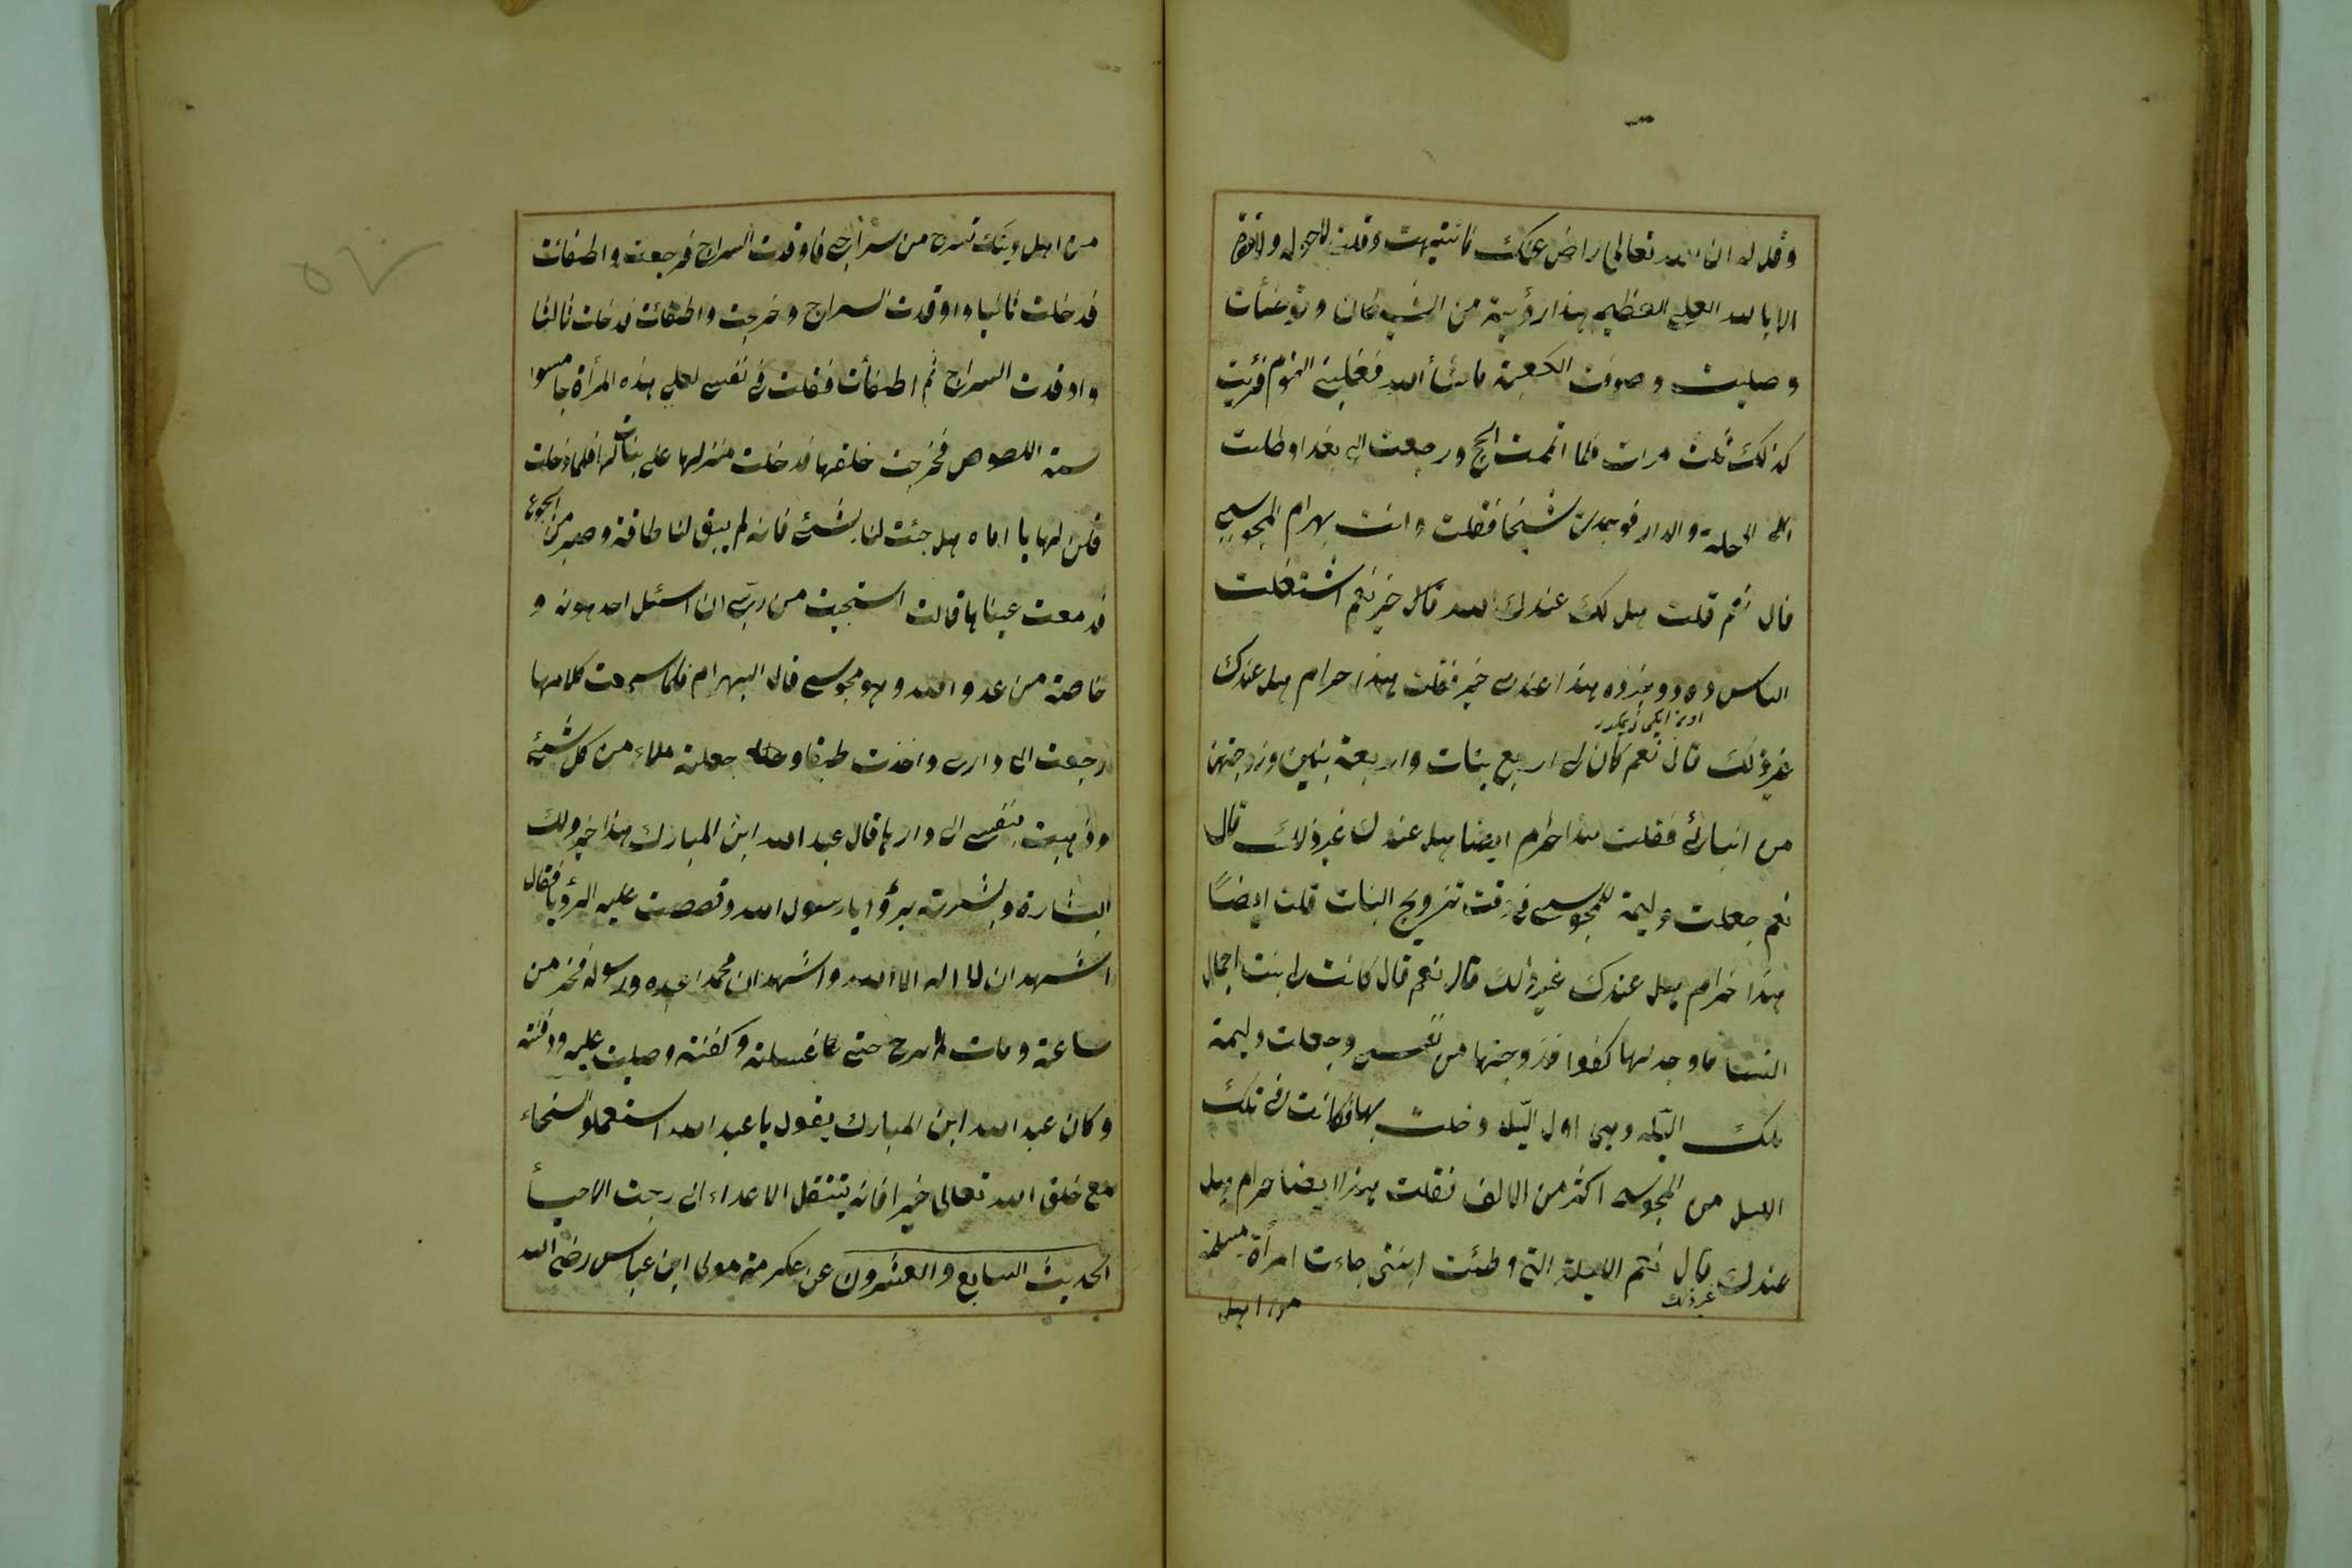 وقل له ان الله تعالى راض عنك فانتبهت وقلت لا حول ولا قوة
الا بالله العلي العظيم هذا رؤية من الشيطان وتوضأت
وصليت وصوفت الكعبة ما شأ الله فغلبني النوم فرئيت
كذلك ثلث مرات فلما اتممت الحج ورجعت الى بغداد طلبت
المحلة والدار فوجدت شيخا فقلت وانت بهرام المجوسي
قال نعم قلت هل لك عندك الله قال خير نعم اشتغلت
الناس ده دوينزده هذا عندى خير فقلت هذا حرام هل عندك
غير ذلك قال نعم كان لى اربع بنات واربعة بنين وزوجتهن
من ابنائى فقلت هذا حرام ايضا هل عندك غير ذلك قال
نعم جعلت وليمة للمجوسى فى وقت تزويج البنات قلت ايضًا
هذا حرام هل عندك غير ذلك قال نعم قال كانت لى بنت اجمل
النسا ما وجد لها كفوا فزوجتها من نفسى وجعلت وليمة
تلك اليله وهى اول اليله دخلت بها فكانت فى تلك
الليل من المجوسى اكثر من الالف فقلت هذا ايضا حرام هل
عندك غير ذلك قال نعم الليلة التى وطئت ابنتى جاءت امرأة مسلمة
من اهل
من اهل دينك تسرج من سراجى فاوقدت السراج فرجعت واطفائت
فدخلت ثانيا واوقدت السراج وخرجت واطفائت فدخلت ثالثا
واوقدت السراج ثم اطفأت فقلت فى نفسى لعلى هذه المرأة جاسوا
سة اللصوص فخرجت خلفها فدخلت منزلها على بنات لها فلما دخلت
قلن لها يا اماه هل جئت لنا بشئ فانه لم يبق لنا طاقة وصبر من الجوع
فدمعت عيناها قالت استحيت من ربى ان اسئل احد دونه و
خاصة من عدو الله وهو مجوسى قال البهرام فلما سمعت كلامها
رجعت الى دارى واخذت طبقا و جعلته ملاء من كل شئ
وذهبت بنفسى الى دارها قال عبد الله ابن المبارك هذا خير ولك
البشارة وبشرته برؤيا رسول الله وقصصت عليه الرؤيا فقال
اشهد ان لا اله الا الله واشهد ان محمدا عبده ورسوله فخر من
ساعة ومات لم ابرح حتى غسلته وكفنته وصليت عليه ودفنته
وكان عبد الله ابن المبارك يقول يا عبد الله استعملوا السخاء
مع خلق الله تعالى خيرا فانه يتنقل الاعداء الى رجت الاحبأ
الحديث السابع والعشرون عن عكرمة مولى ابن عباس رضى الله